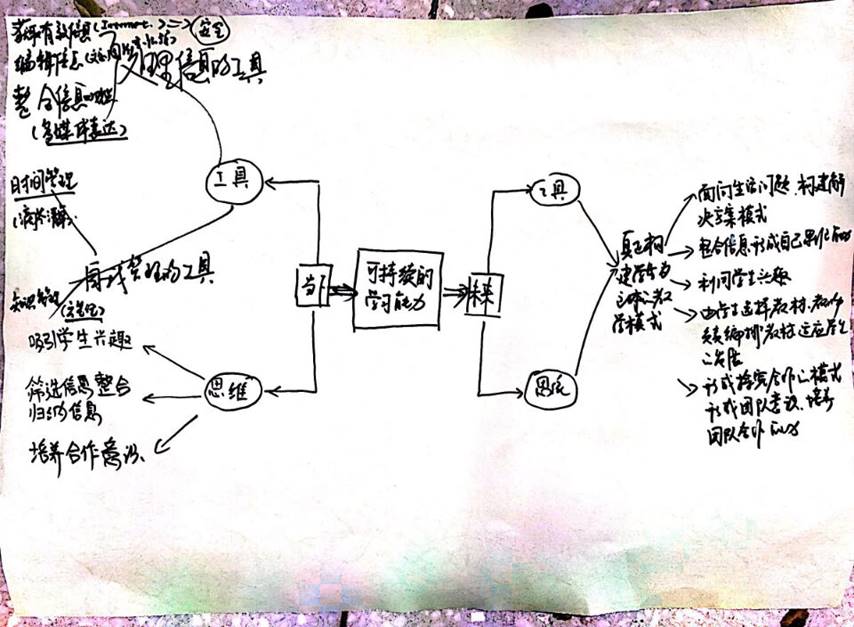 获取有效信息(Internet.)⇒安全
编辑信息
处理信息的工具
整合信息
(多媒体表达)
工具
时间管理
自我管理的工具
知识管理
吸引学生兴趣
思维
筛选信息整合
归纳信息
培养合作意识、
当下
可持续的
学习能力
未来
工具
思维
真正构
建学生为
主体之教
学模式
面向生活问题、构建解
决方案模式
整合信息形成自己
利用学生兴趣
由学生选择教材、教师
负责编排教材适应学生
形成探究合作之模式
形成团队意识、培养
团队合作能力